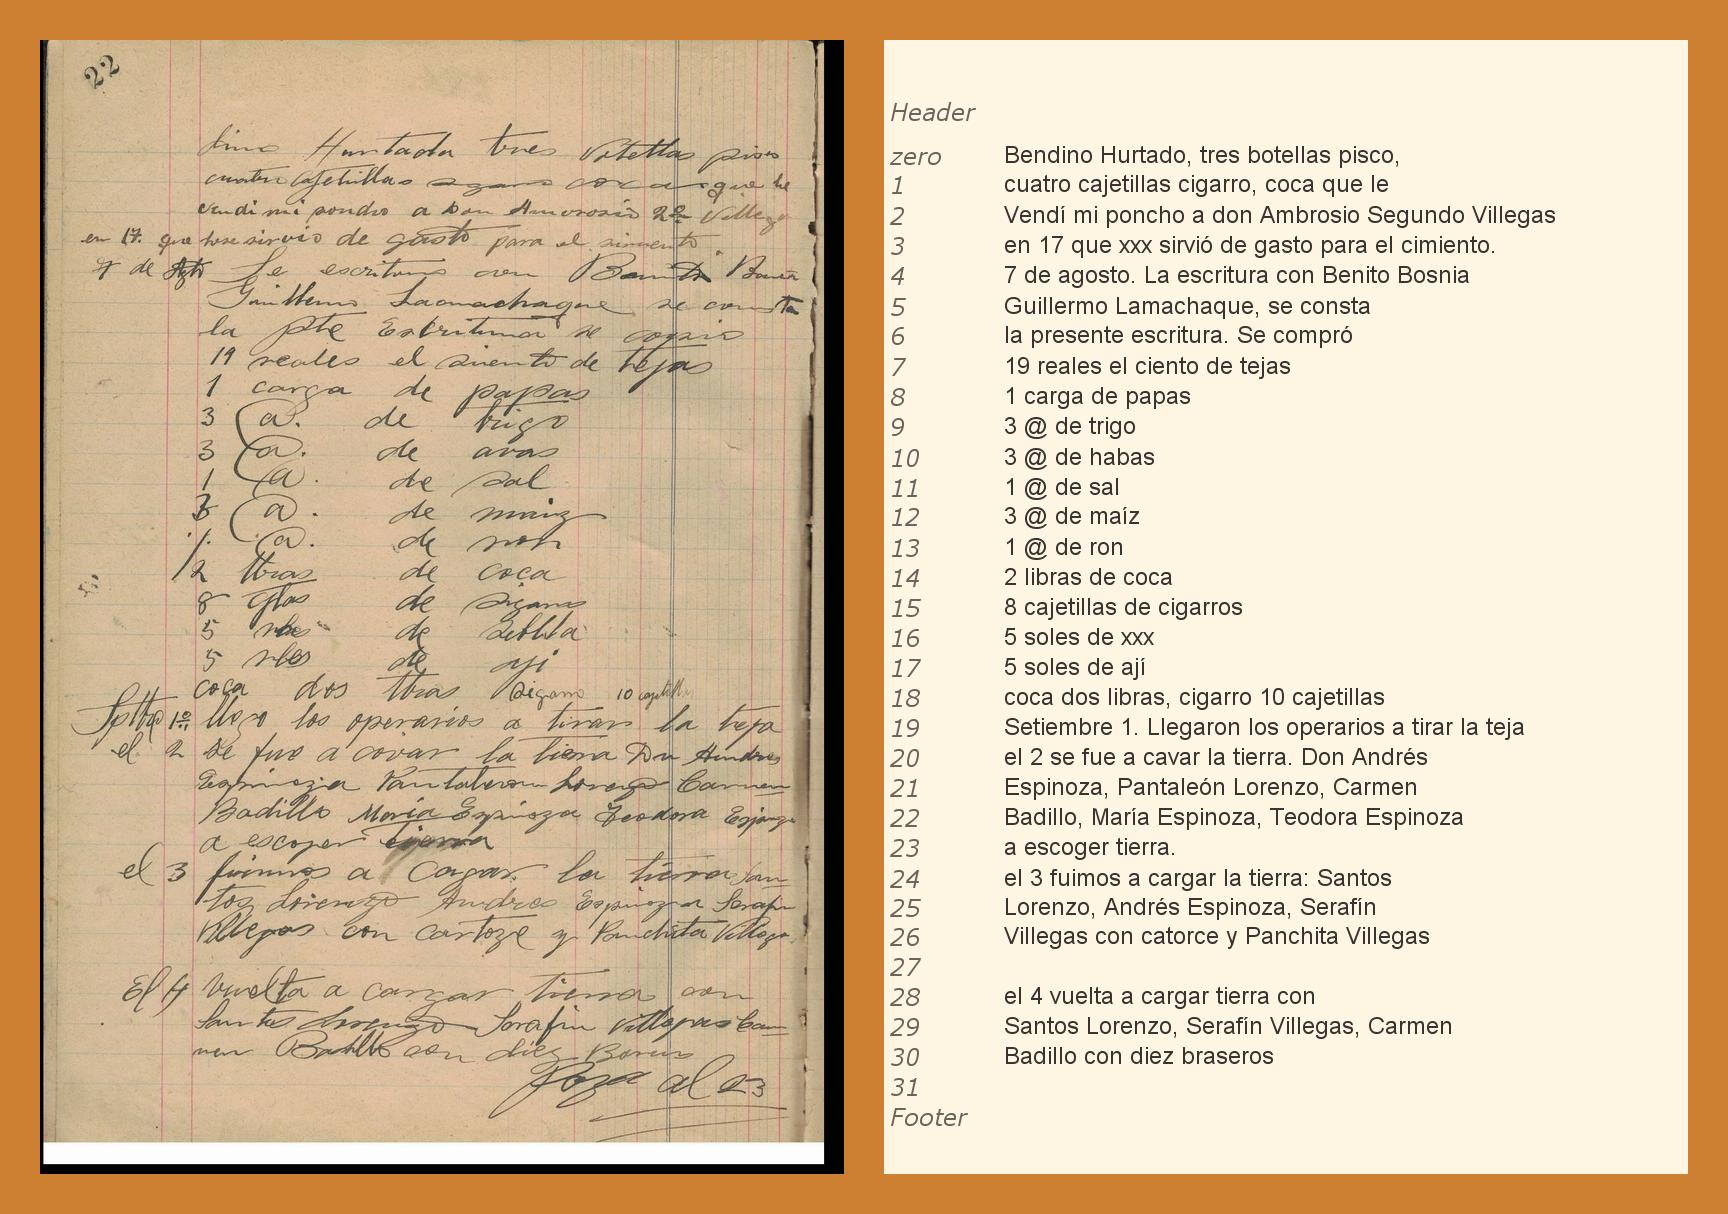 22
dino Hurtado tres votellas pisco
cuatro cajetillas sigarro coca que le
vendi mi poncho a Don Amvrosio 2do Villegas
en 17. que sirvio de gasto para el simiento.
7 de Agto Le escritura con Benito
Guillermo Lamachaque se consta
la pte Escritura se
19 reales el siento de tejas
1 carga de papas
3 @. de trigo
3 @. de avas
1 @. de sal
3 @. de maiz
1 @. de ron
2 lbras de coca
8 de sigarro
5 de
5 de aji
coca dos lbras sigarro 10 cajetillas
Setbre 1º llego los operarios a tirar la teja
el 2 se fue a covar la tierra Dn Andres
Espinoza Pantaleon Lorenzo Carmen
Badillo María Espinoza Teodora Espinoza
a escojer tierra
el 3 fuimos a Cargar la tierra San
tos Lorenzo Andres Espinoza Serafin
Villegas con catorze y Panchita Villegas
El 4 vuelta a cargar tierra con
Santos Lorenzo Serafin Villegas Car
men Badillo con diez
Pasa al 23
Header
zero Bendino Hurtado, tres botellas pisco,
1 cuatro cajetillas cigarro, coca que le
2 Vendí mi poncho a don Ambrosio Segundo Villegas
3 en 17 que xxx sirvió de gasto para el cimiento.
4 7 de agosto. La escritura con Benito Bosnia
5 Guillermo Lamachaque, se consta
6 la presente escritura. Se compró
7 19 reales el ciento de tejas
8 1 carga de papas
9 3 @ de trigo
10 3 @ de habas
11 1 @ de sal
12 3 @ de maíz
13 1 @ de ron
14 2 libras de coca
15 8 cajetillas de cigarros
16 5 soles de xxx
17 5 soles de ají
18 coca dos libras, cigarro 10 cajetillas
19 Setiembre 1. Llegaron los operarios a tirar la teja
20 el 2 se fue a cavar la tierra. Don Andrés
21 Espinoza, Pantaleón Lorenzo, Carmen
22 Badillo, María Espinoza, Teodora Espinoza
23 a escoger tierra.
24 el 3 fuimos a cargar la tierra: Santos
25 Lorenzo, Andrés Espinoza, Serafín
26 Villegas con catorce y Panchita Villegas
27
28 el 4 vuelta a cargar tierra con
29 Santos Lorenzo, Serafín Villegas, Carmen
30 Badillo con diez braseros
31
Footer